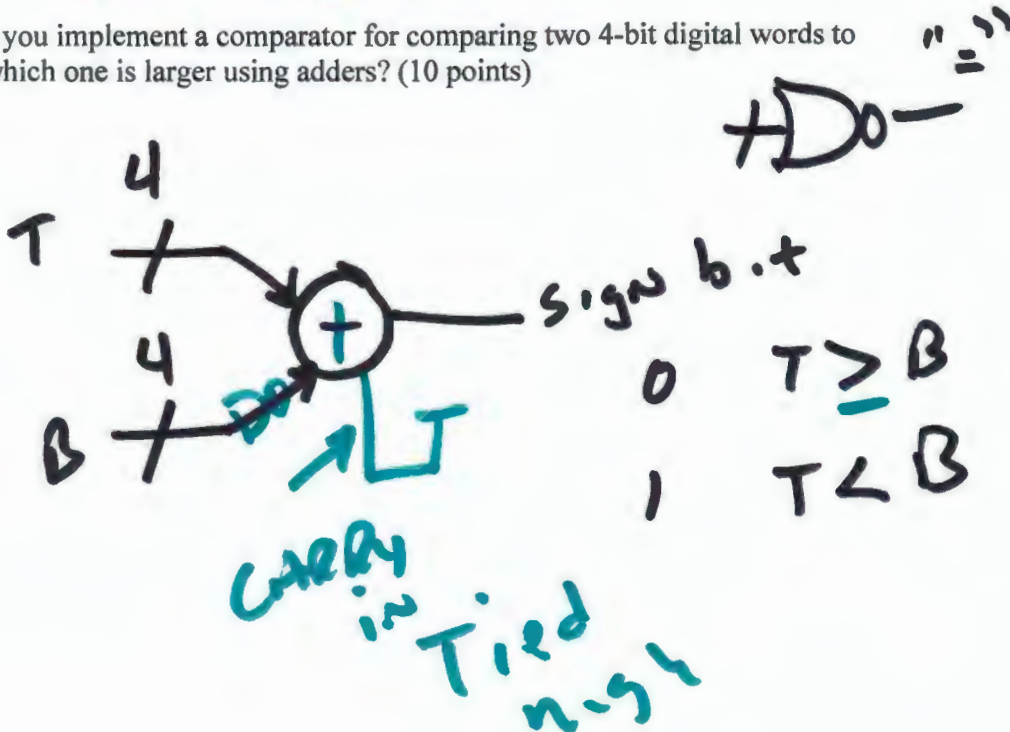 you implement a comparator for comparing two 4-bit digital words to
which one is larger using adders? (10 points)
"="
4
T
+
sign bit
4
B
0 T ≥ B
1 T < B
CARRY
in
Tied
high